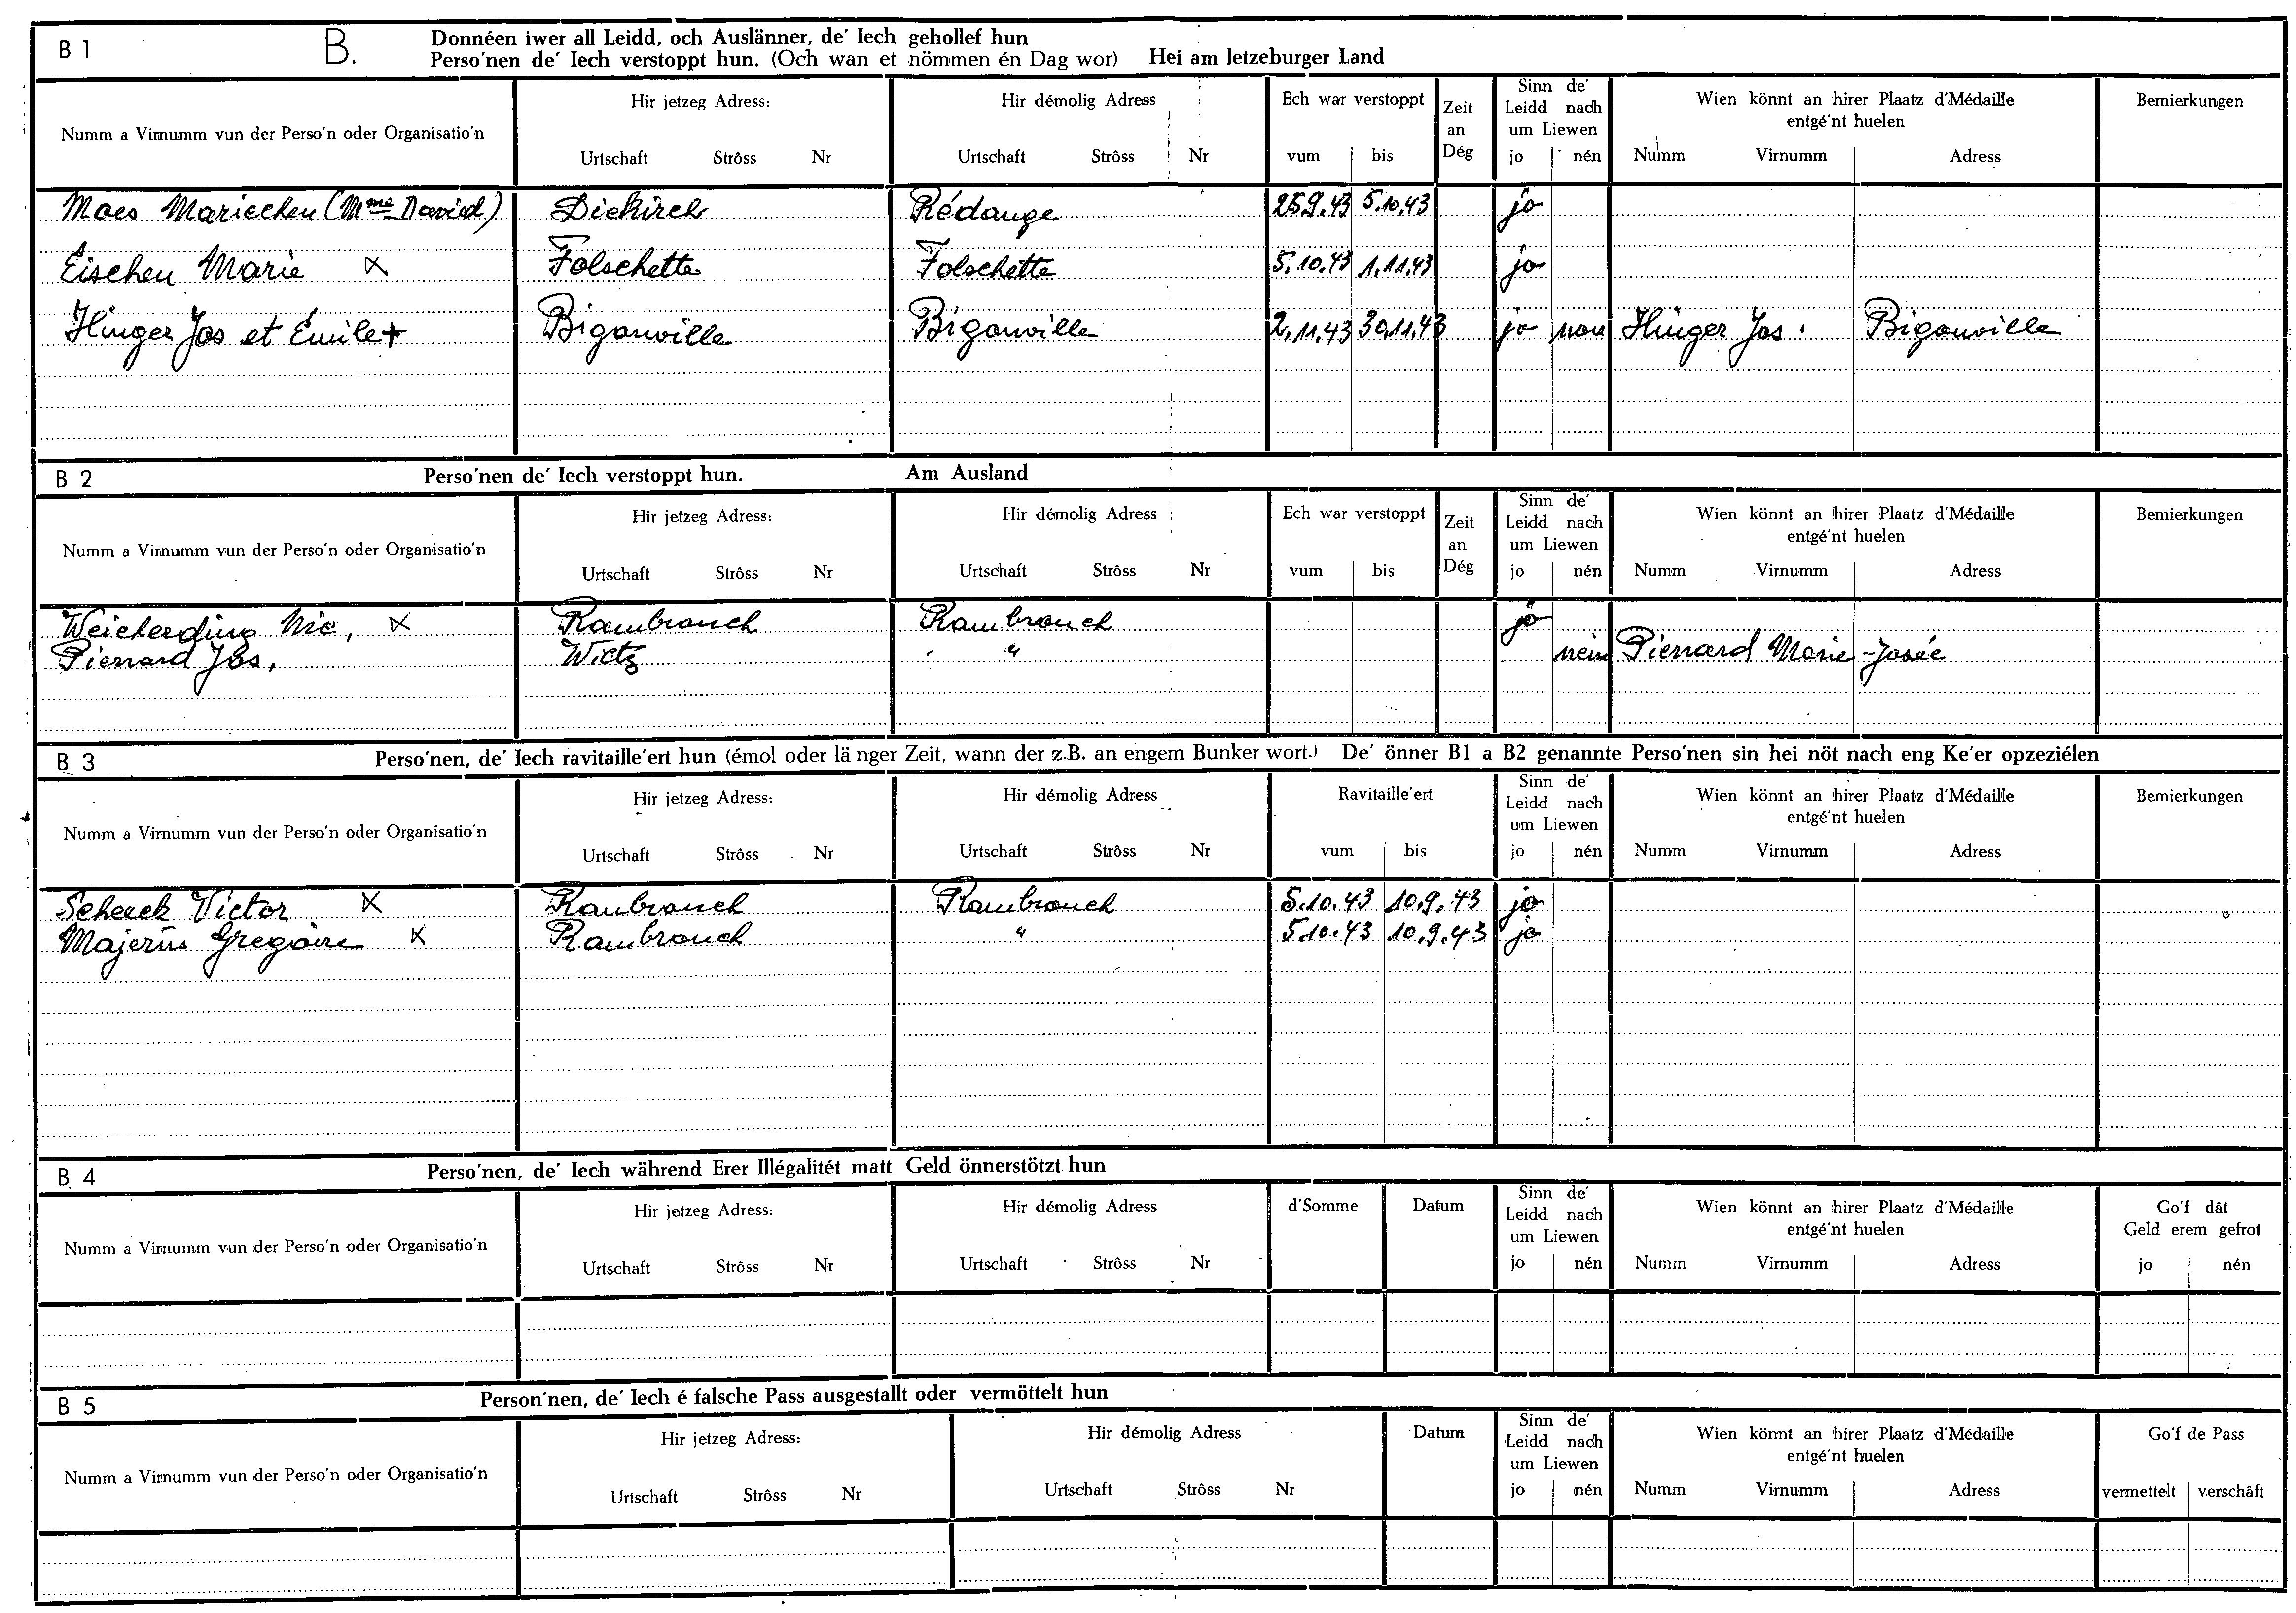 B 1 B. Donnéen iwer all Leidd, och Auslänner, de' Iech gehollef hun
Perso'nen de' Iech verstoppt hun. (Och wan et nömmen én Dag wor) Hei am letzeburger Land
Numm a Virnumm vun der Perso'n oder Organisatio'n
Hir jetzeg Adress:
Urtschaft Strôss Nr
Hir démolig Adress
Urtschaft Strôss Nr
Ech war verstoppt
vum bis
Zeit
an
Dég
Sinn de'
Leidd nach
um Liewen
jo nén
Wien könnt an hirer Plaatz d'Médaille
entgé'nt huelen
Numm Virnumm Adress
Bemierkungen
Maes Mariechen (Mme David) Diekirch Rédange 25.9.43 5.10.43 jo
Eischen Marie x Folschette Folschette 5.10.43 1.11.43 jo
Hinger Jos et Émile + Bigonville Bigonville 2.11.43 30.11.43 jo non Hinger Jos. Bigonville
B 2 Perso'nen de' Iech verstoppt hun. Am Ausland
Numm a Virnumm vun der Perso'n oder Organisatio'n
Hir jetzeg Adress:
Urtschaft Strôss Nr
Hir démolig Adress
Urtschaft Strôss Nr
Ech war verstoppt
vum bis
Zeit
an
Dég
Sinn de'
Leidd nach
um Liewen
jo nén
Wien könnt an hirer Plaatz d'Médaille
entgé'nt huelen
Numm Virnumm Adress
Bemierkungen
Weicherding Nic, x Rambrouch Rambrouch jo
Pierrard Jos, Wictz " nein Pierrard Marie-Josée
B 3 Perso'nen, de' Iech ravitaille'ert hun (émol oder länger Zeit, wann der z.B. an engem Bunker wort.) De' önner B1 a B2 genannte Perso'nen sin hei nöt nach eng Ke'er opzeziélen
Numm a Virnumm vun der Perso'n oder Organisatio'n
Hir jetzeg Adress:
Urtschaft Strôss Nr
Hir démolig Adress
Urtschaft Strôss Nr
Ravitaille'ert
vum bis
Sinn de'
Leidd nach
um Liewen
jo nén
Wien könnt an hirer Plaatz d'Médaille
entgé'nt huelen
Numm Virnumm Adress
Bemierkungen
Scheeck Victor x Rambrouch Rambrouch 5.10.43 10.9.43 jo
Majerus Gregoire x Rambrouch " 5.10.43 10.9.43 jo
B 4 Perso'nen, de' Iech während Erer Illégalitét matt Geld önnerstötzt hun
Numm a Virnumm vun der Perso'n oder Organisatio'n
Hir jetzeg Adress:
Urtschaft Strôss Nr
Hir démolig Adress
Urtschaft Strôss Nr
d'Somme
Datum
Sinn de'
Leidd nach
um Liewen
jo nén
Wien könnt an hirer Plaatz d'Médaille
entgé'nt huelen
Numm Virnumm Adress
Go'f dât
Geld erem gefrot
jo nén
B 5 Person'nen, de' Iech é falsche Pass ausgestallt oder vermöttelt hun
Numm a Virnumm vun der Perso'n oder Organisatio'n
Hir jetzeg Adress:
Urtschaft Strôss Nr
Hir démolig Adress
Urtschaft Strôss Nr
Datum
Sinn de'
Leidd nach
um Liewen
jo nén
Wien könnt an hirer Plaatz d'Médaille
entgé'nt huelen
Numm Virnumm Adress
Go'f de Pass
vermettelt verschâft